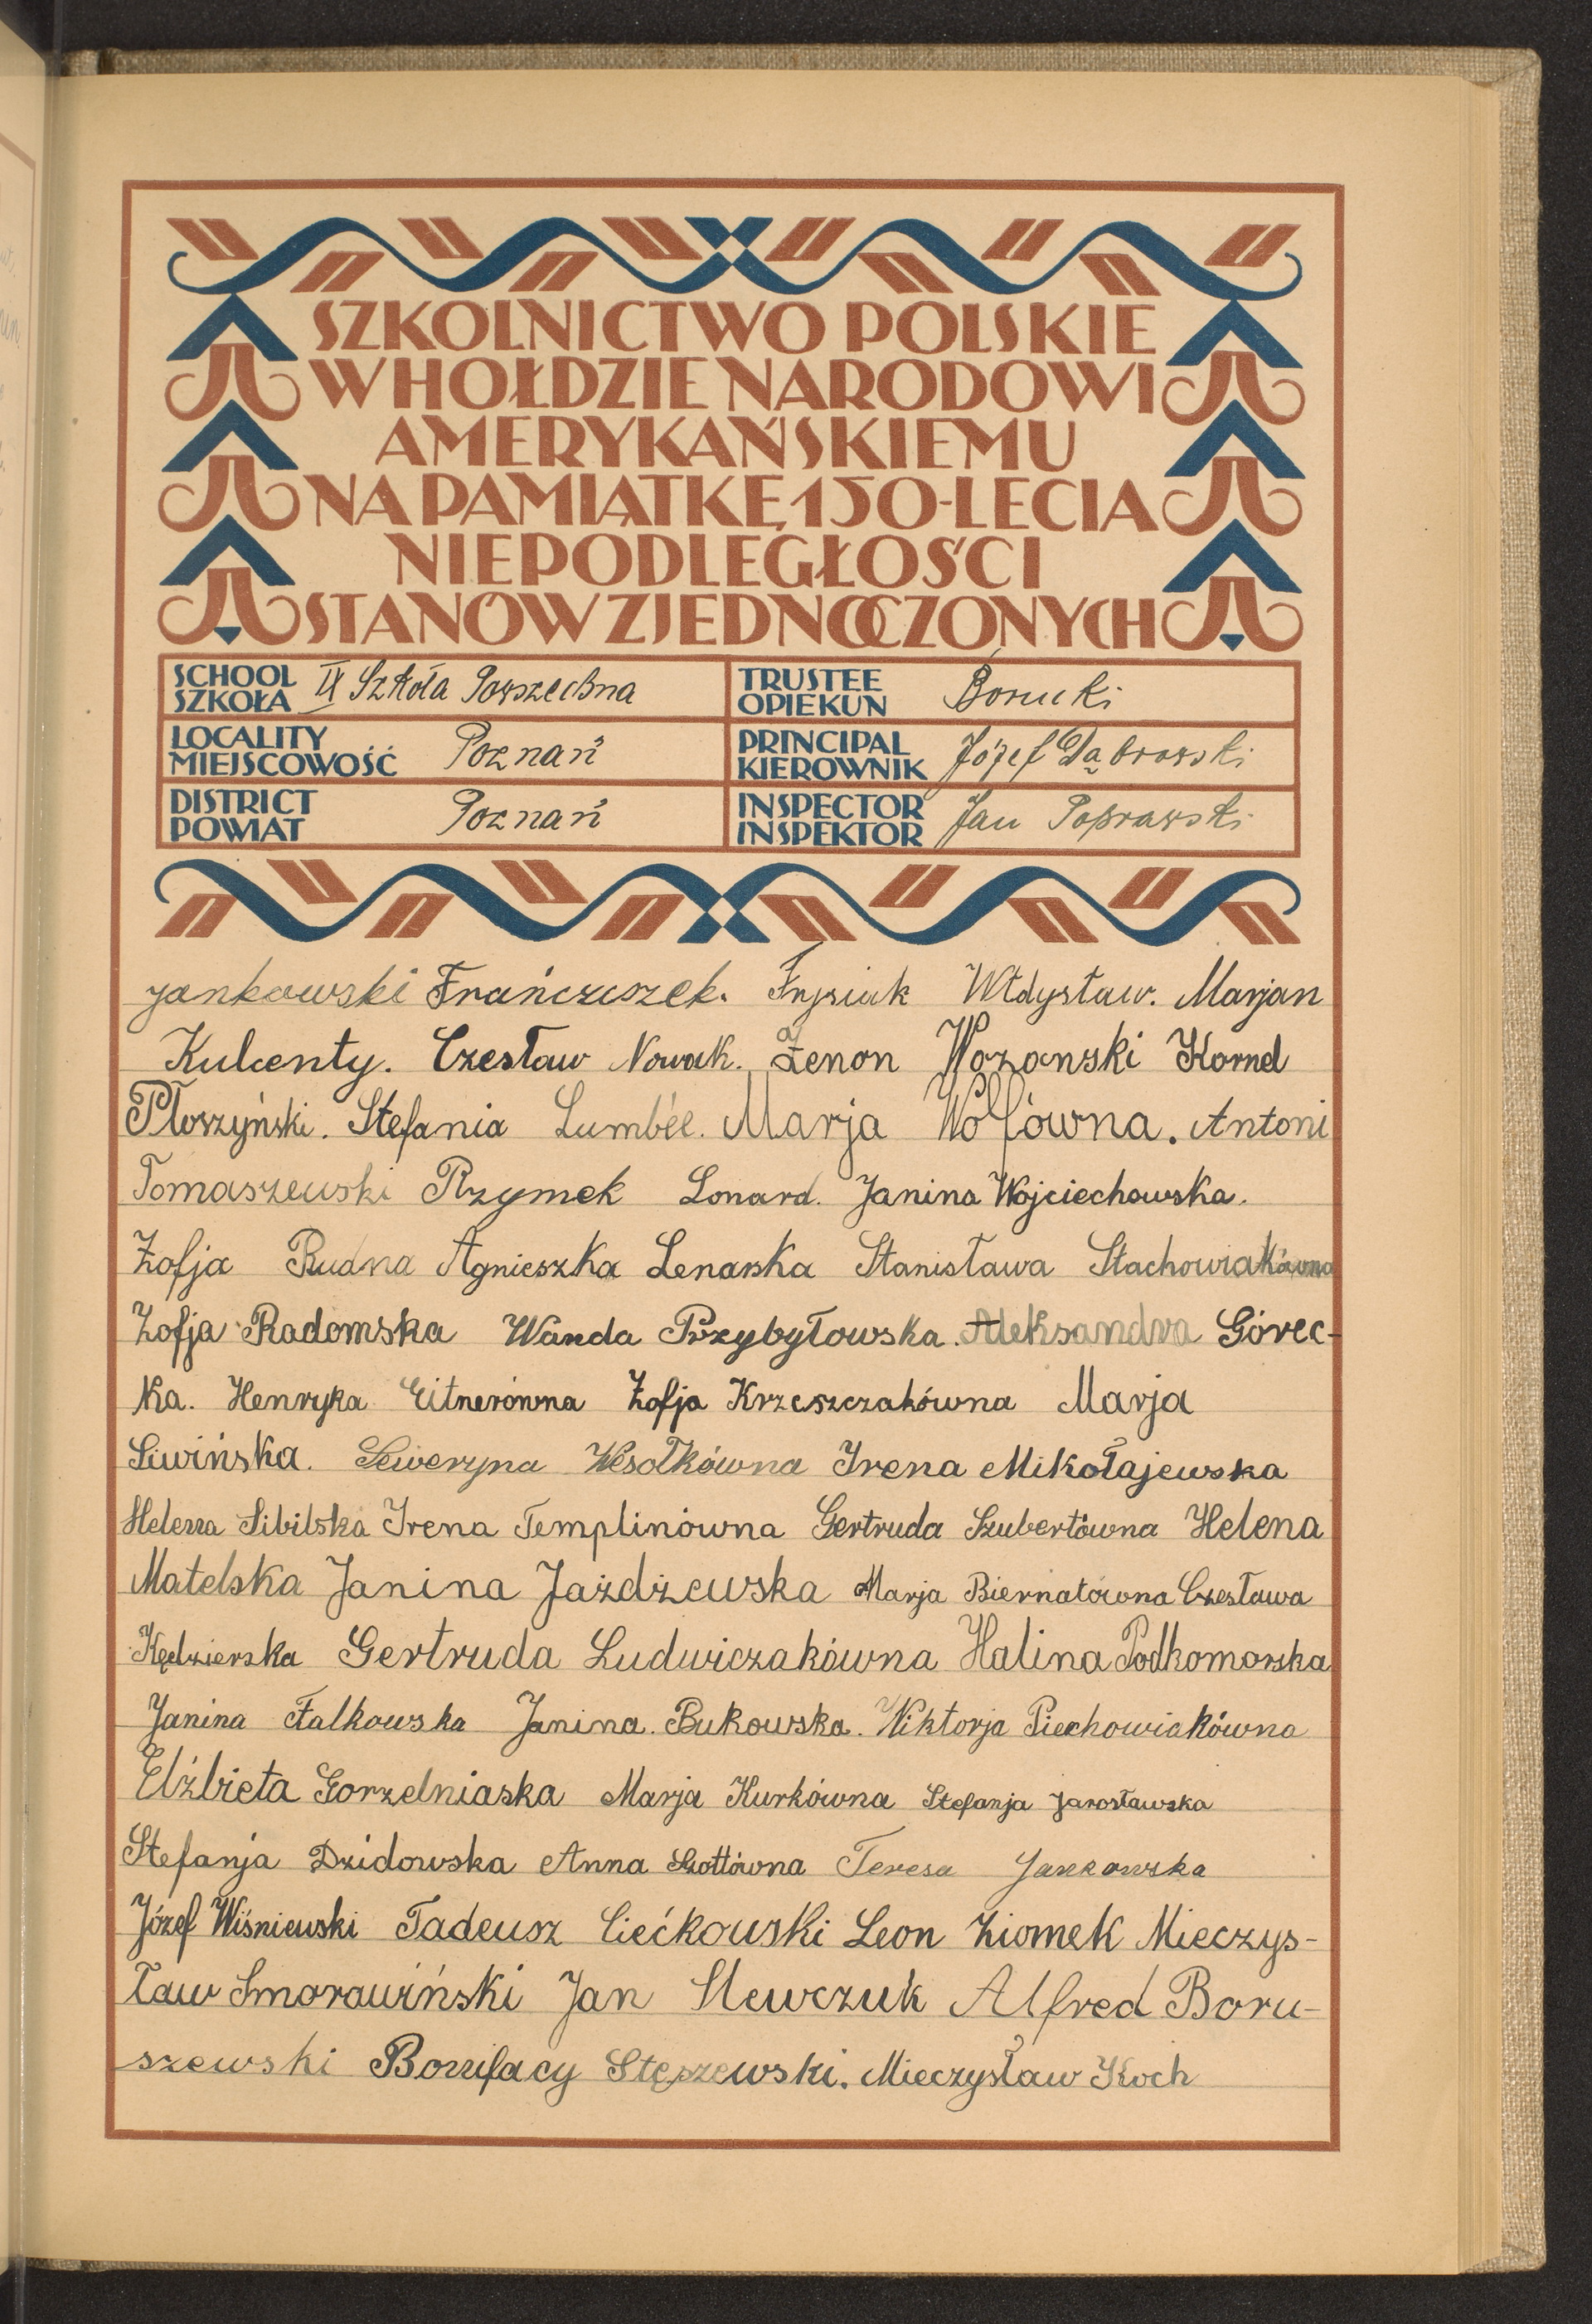 SZKOLNICTWO POLSKIE
W HOŁDZIE NARODOWI
AMERYKAŃSKIEMU
NA PAMIĄTKĘ 150-LECIA
NIEPODLEGŁOŚCI
STANÓW ZJEDNOCZONYCH
SCHOOL
SZKOŁA
IX Szkoła Powszechna
TRUSTEE
OPIEKUN
Borucki
LOCALITY
MIEJSCOWOŚĆ
Poznań
PRINCIPAL
KIEROWNIK
Józef Dąbrowski
DISTRICT
POWIAT
Poznań
INSPECTOR
INSPEKTOR
Jan Poprawski
Jankowski Frańciszek. Frysiak Włdysław. Marjan
Kulcenty. Czesław Nowak. Zenon Wozowski Kornel
Płoszyński. Stefania Lumbée. Marja Wolfówna. Antoni
Tomaszewski Rzymek Lonard. Janina Wojciechowska.
Zofja Rudna Agnieszka Lenarska Stanisława Stachowiakówna
Zofja Radomska Wanda Przybyłowska. Aleksandra Górec-
ka. Henryka Eitnerówna Zofja Krzeszczakówna Marja
Siwińska. Seweryna Wesołkówna Irena Mikołajewska
Helena Sibilska Irena Templinówna Gertruda Szubertówna Helena
Matelska Janina Jażdżewska Marja Biernatówna Czesława
Kędzierska Gertruda Ludwiczakówna Halina Podkomorska
Janina Falkowska Janina. Bukowska. Wiktorja Piechowiakówna
Elżbieta Gorzelniaska Marja Kurkówna Stefanja Jarosławska
Stefanja Dzidowska Anna Szottówna Teresa Jankowska
Józef Wiśniewski Tadeusz Ciećkowski Leon Ziomek Mieczys-
ław Smorawiński Jan Slewczuk Alfred Boru-
szewski Bonifacy Stęszewski. Mieczysław Koch